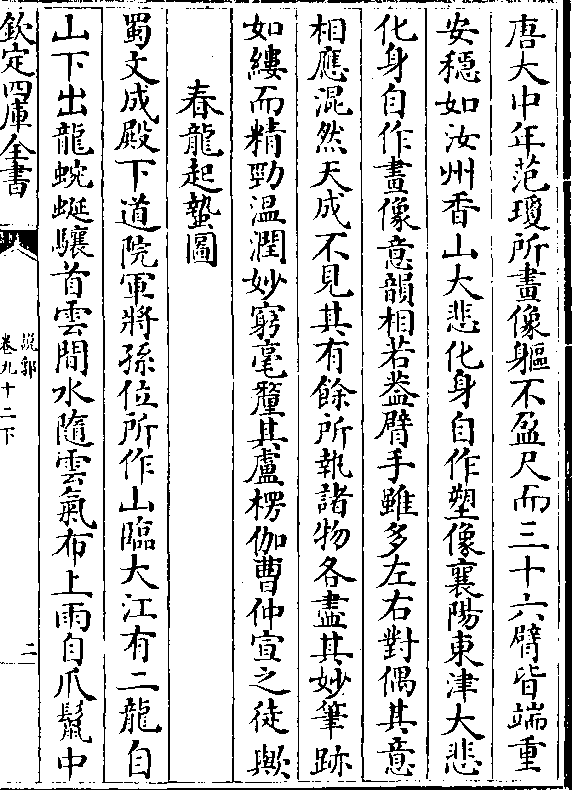 唐大中年范瓊所畫像軀不盈尺而三十六臂皆端重
安穩如汝州香山大悲化身自作塑像襄陽東津大悲
化身自作畫像意韻相若葢臂手雖多左右對偶其意
相應混然天成不見其有餘所執諸物各盡其妙筆跡
如縷而精勁温潤妙窮毫釐其盧楞伽曹仲宣之徒歟
春龍起蟄圖
蜀文成殿下道院軍將孫位所作山臨大江有二龍自
山下出龍蜿蜒驤首雲間水隨雲氣布上雨自爪鬛中
欽定四庫全書
說郛
卷九十二下
二